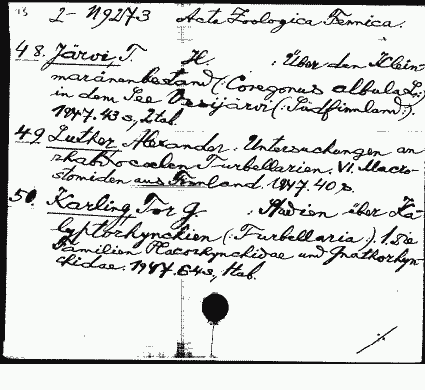 2- N9273 Acta Zoologica Fennica.
48. Järvi, T. H. : Über den Klein-
maränenbestand (: Coregonus albula L:)
in dem See Vesijärvi (: Südfinnland:).
1947. 43 s, 2 tal.
49. Luther, Alexander. Untersuchungen an
rhabdocoelen Turbellarien. VI. Macro-
stomiden aus Finnland. 1947 40 s.
50. Karling, Tor G. : Studien über Ka-
lyptorhynchien (: Turbellaria:). 1. Die
Familien Placorhynchidae und Gnathorhyn-
chidae. 1947. 64 s, 1 tab.